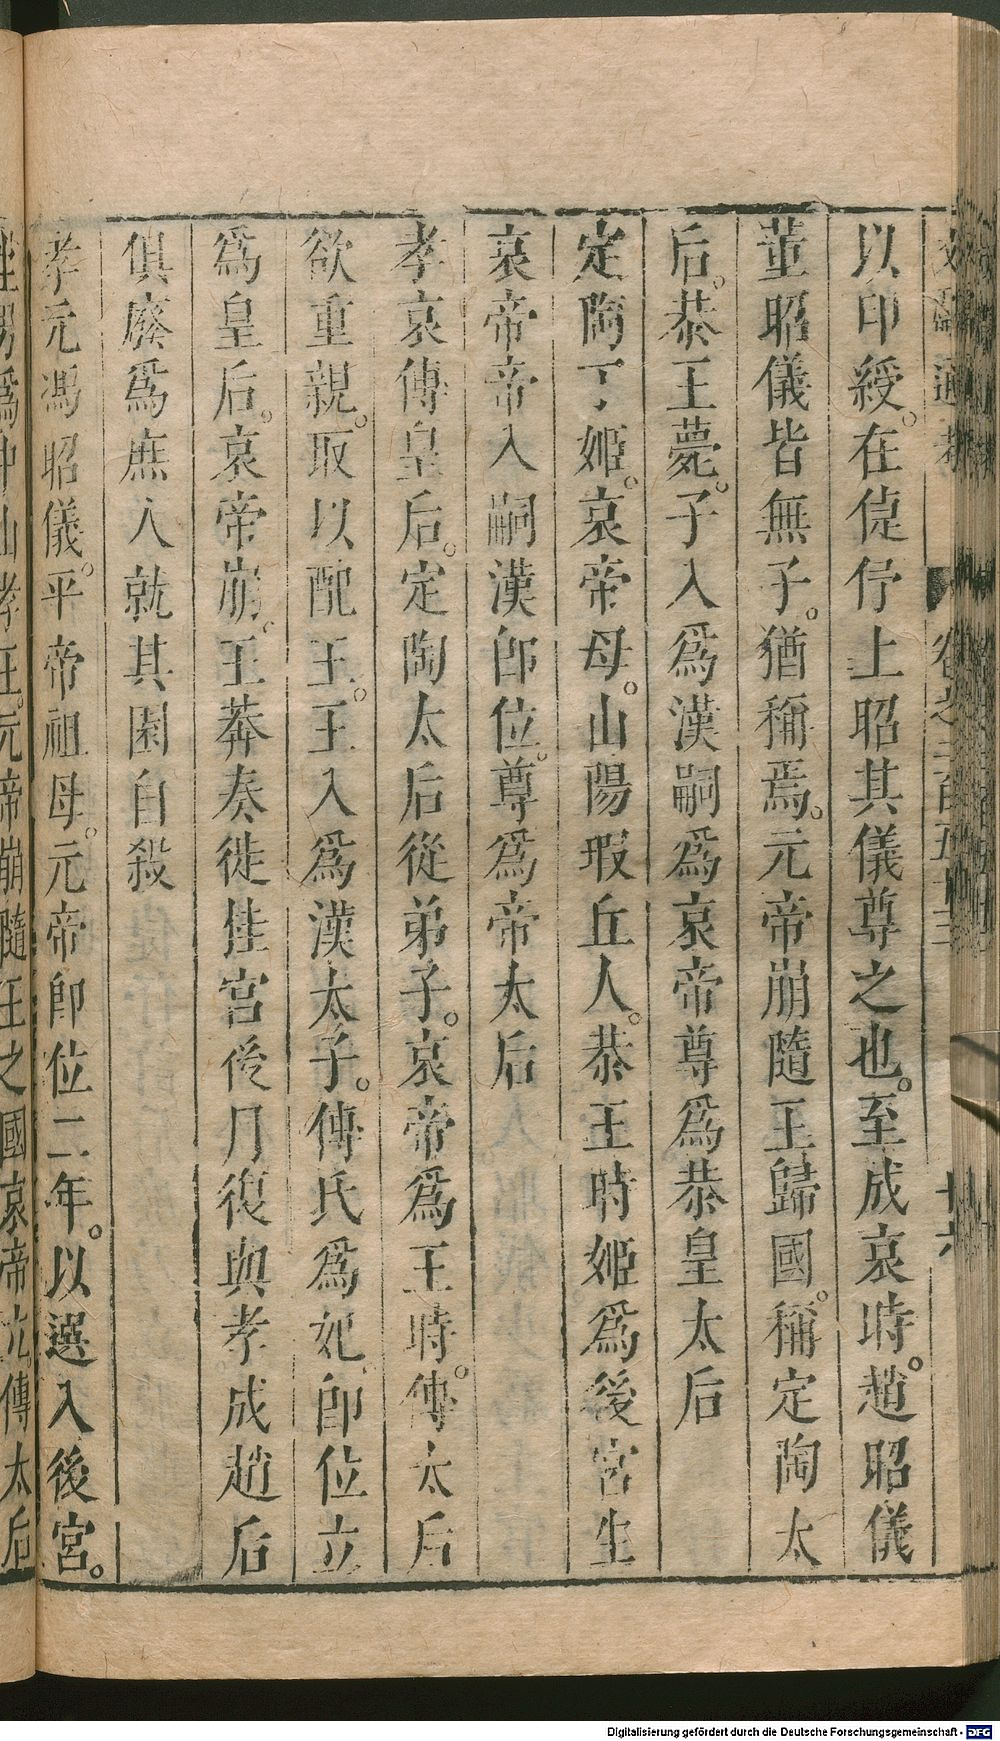 以印綬。在倢伃上昭其儀尊之也。至成哀時。趙昭儀
董昭儀皆無子。猶稱焉。元帝崩隨王歸國。稱定陶太
后。恭王薨。子入爲漢嗣爲哀帝尊爲恭皇太后
定陶丁姬。哀帝母。山陽瑕丘人。恭王時姬爲後宮生
哀帝帝入嗣漢卽位。尊爲帝太后
孝哀傅皇后。定陶太后從弟子。哀帝爲王時。傅太后
欲重親。取以配王。王入爲漢太子。傅氏爲妃。卽位立
爲皇后。哀帝崩。王莽奏徙桂宮後月復與孝成趙后
俱廢爲庶人就其園自殺
孝元馮昭儀。平帝祖母。元帝卽位二年。以選入後宮。
爲中山孝王。元帝崩隨王之國哀帝 傅太后
Digitalisierung gefördert durch die Deutsche Forschungsgemeinschaft - DFG